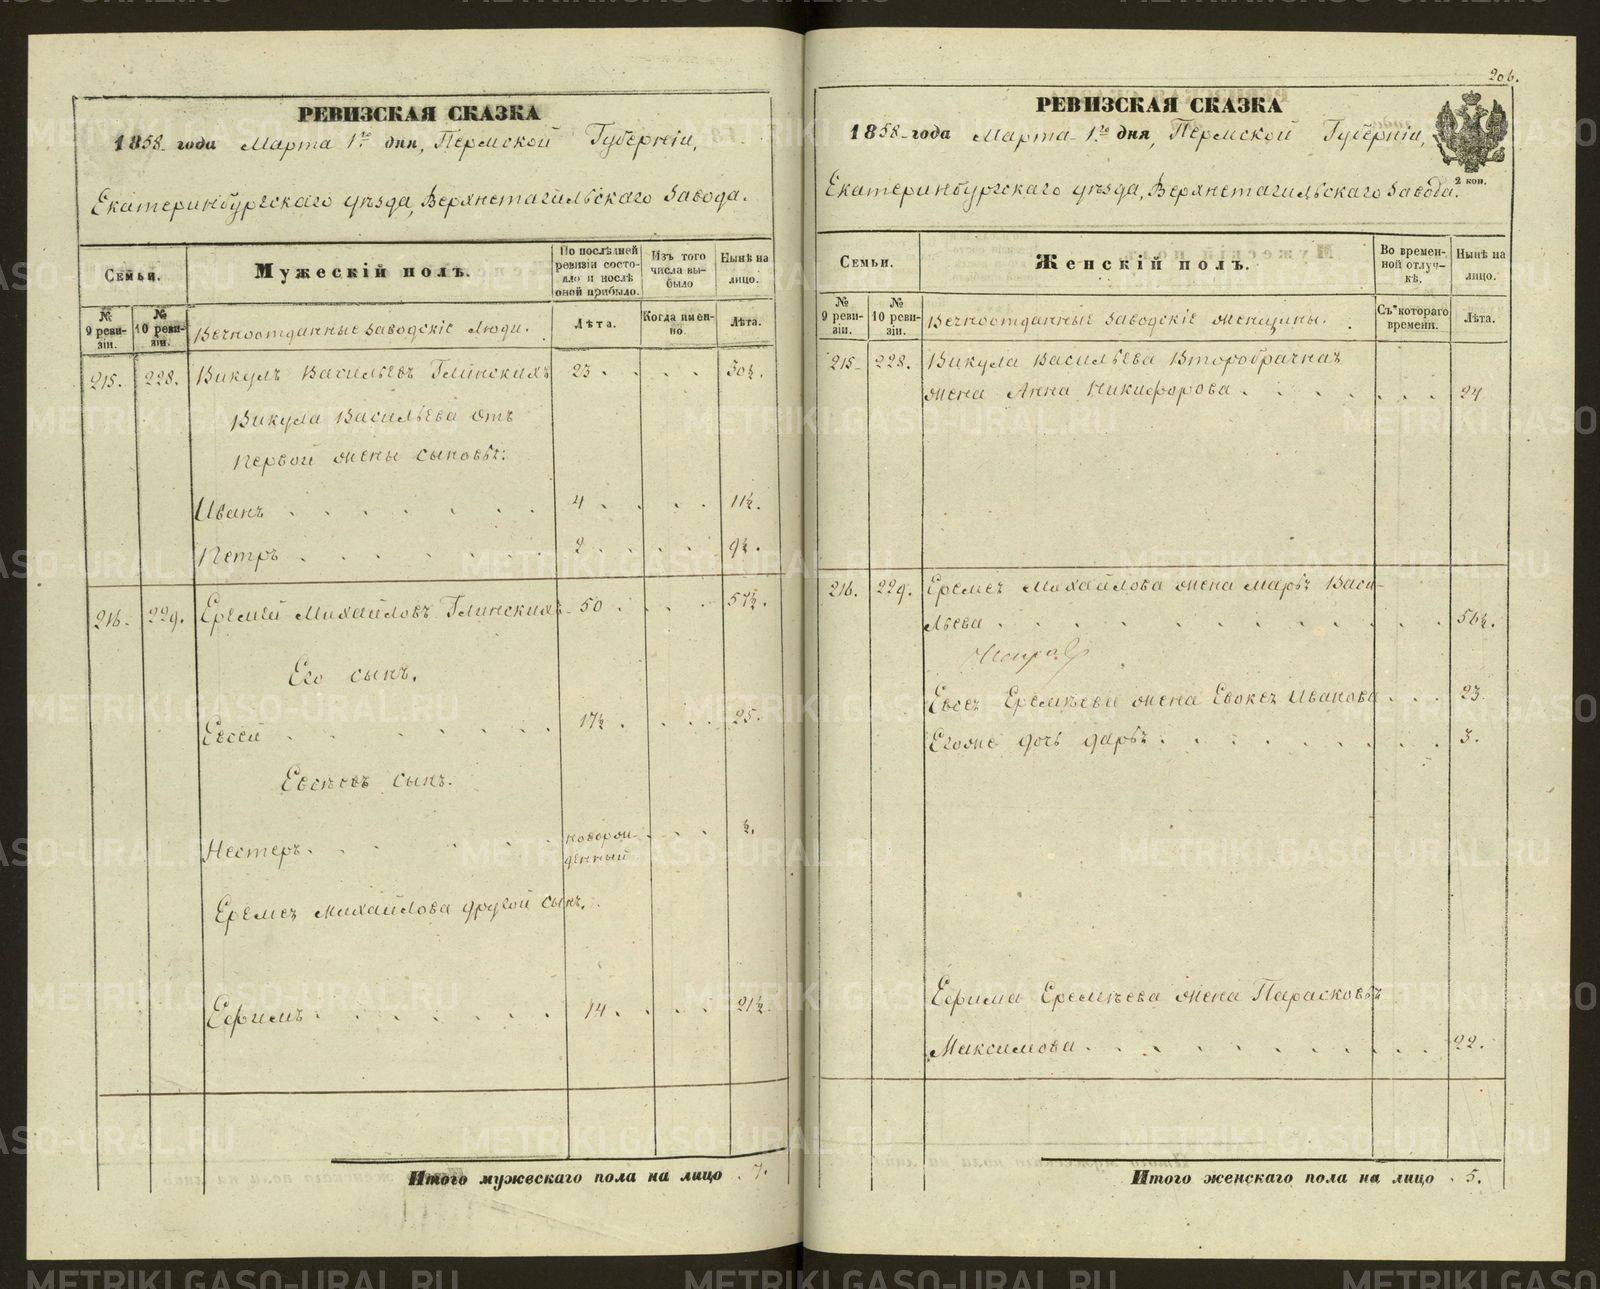 РЕВИЗСКАЯ СКАЗКА
1858 года Марта 1го дня, Пермской Губерніи,
Екатеринбургскаго уѣзда, Верхнетагильскаго завода.
Семьи.
Мужескій полъ.
По послѣдней ревизіи состояло и послѣ оной прибыло.
Изъ того числа выбыло
Нынѣ на лицо.
№ 9 ревизіи.
№ 10 ревизіи.
Вечноотданные заводскіе люди.
Лѣта.
Когда именно.
Лѣта.
215. 228. Викулъ Васильевъ Глинскихъ 23 . . . . 30½.
Викула Васильева отъ
первой жены сыновья:
Иванъ . . . . . . . 4 . . . . 11½.
Петръ . . . . . . . 2 . . . . 9½.
216. 229. Еремей Михайловъ Глинскихъ 50 . . . . 57½.
Его сынъ.
Евсей . . . . . . . 17½ . . . . 25.
Евсѣевъ сынъ.
Нестеръ . . . . . . новорож- . . . ½.
денный
Еремея Михайлова другой сынъ.
Ефимъ . . . . . . . 14 . . . . 21½.
Итого мужескаго пола на лицо . 7.
206.
РЕВИЗСКАЯ СКАЗКА
1858 года Марта 1го дня, Пермской Губерніи,
2 коп.
Екатеринбургскаго уѣзда, Верхнетагильскаго завода.
Семьи.
Женскій полъ.
Во временной отлучкѣ.
Нынѣ на лицо.
№ 9 ревизіи.
№ 10 ревизіи.
Вечноотданныя заводскіе женщины.
Съ котораго времени.
Лѣта.
215 228. Викула Васильева Второбрачная
жена Анна Никифорова . . . . . . . 24
216. 229. Еремея Михайлова жена Марья Васи-
льева . . . . . . . . . . 56½.
Евсея Еремѣева жена Евдокея Иванова . . . 23.
Егоже дочь Дарья . . . . . . . . 3.
Ефима Еремѣева жена Парасковья
Максимова . . . . . . . . . 22.
Итого женскаго пола на лицо . 5.
METRIKI.GASO-URAL.RU